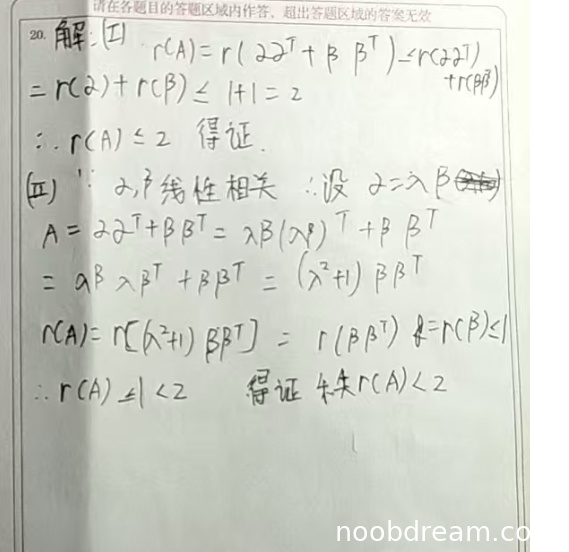 请在各题目的答题区域内作答，超出答题区域的答案无效
20. 解：(I) r(A)=r(αα^T+ββ^T)≤r(αα^T)+r(ββ^T)
=r(α)+r(β)≤1+1=2
∴r(A)≤2 得证.
(II) ∵α,β线性相关 ∴设α=λβ
A=αα^T+ββ^T=λβ(λβ)^T+ββ^T
=αβλβ^T+ββ^T=(λ²+1)ββ^T
r(A)=r[(λ²+1)ββ^T]=r(ββ^T)=r(β)≤1
∴r(A)≤1<2 得证 秩r(A)<2
noobdream.co